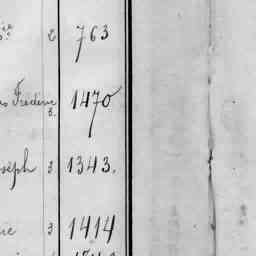 2 763
Frédéric
3. 1470
oseph 3 1343.
ie 3 1414